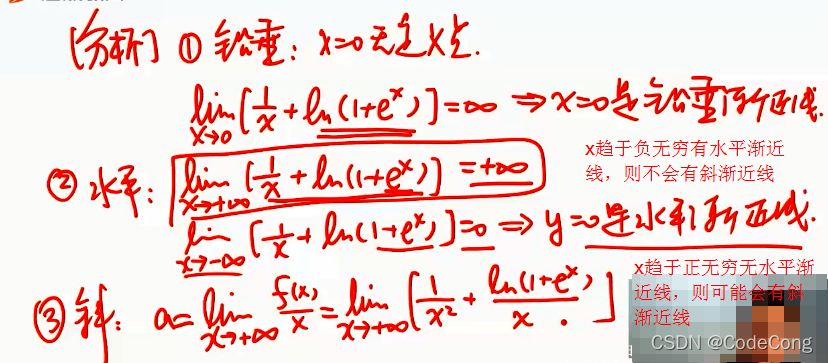 [分析] ① 铅垂: x=0无定义点.
lim x→0 [1/x + ln(1+e^x)] = ∞ ⇒ x=0是铅垂渐近线.
② 水平: lim x→+∞ [1/x + ln(1+e^x)] = +∞
x趋于负无穷有水平渐近
线，则不会有斜渐近线
lim x→-∞ [1/x + ln(1+e^x)] = 0 ⇒ y=0是水平渐近线.
x趋于正无穷无水平渐
近线，则可能会有斜
渐近线
③ 斜: a = lim x→+∞ f(x)/x = lim x→+∞ [1/x² + ln(1+e^x)/x]
CSDN @CodeCong